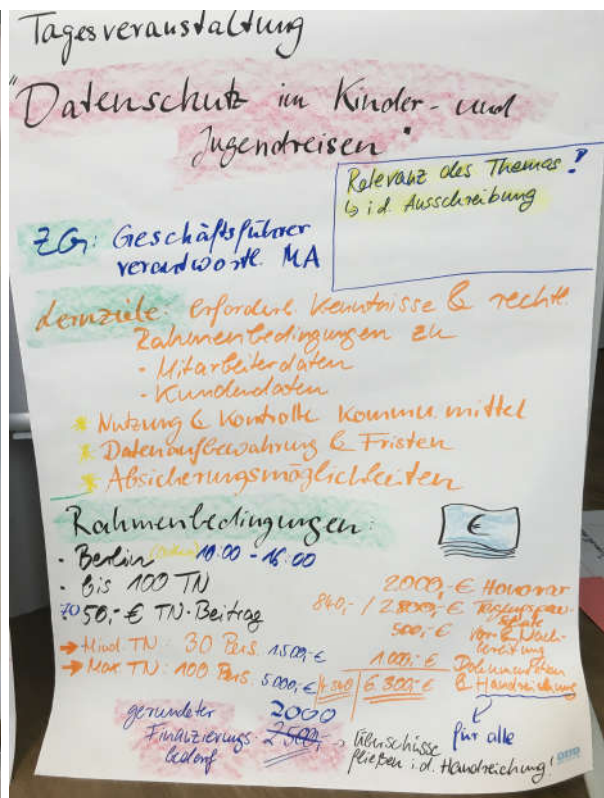 Tagesveranstaltung
"Datenschutz im Kinder- und
Jugendreisen"
Relevanz des Themas!
↳ i.d. Ausschreibung
ZG: Geschäftsführer
verantwortl. MA
Lernziele: erforderl. Kenntnisse & rechtl.
Rahmenbedingungen zu
- Mitarbeiterdaten
- Kundendaten
* Nutzung & Kontrolle Kommu.mittel
* Datenaufbewahrung & Fristen
* Absicherungsmöglichkeiten
Rahmenbedingungen:
€
· Berlin 10:00 - 16:00
· bis 100 TN
70 50,- € TN-Beitrag
→ Mind. TN: 30 Pers. 1.500,-€
→ Max. TN: 100 Pers. 5.000,-€
2000,-€ Honorar
840,- / 2800,-€ Tagungspau-
schale
500,-€ Vor & Nach-
bereitung
1.000,-€ Dokumentation
4.340 6.300,-€ & Handreichung
für alle
gerundeter 2000
Finanzierungs- 2500,-
bedarf
→ Überschüsse
fließen i.d. Handreichung!